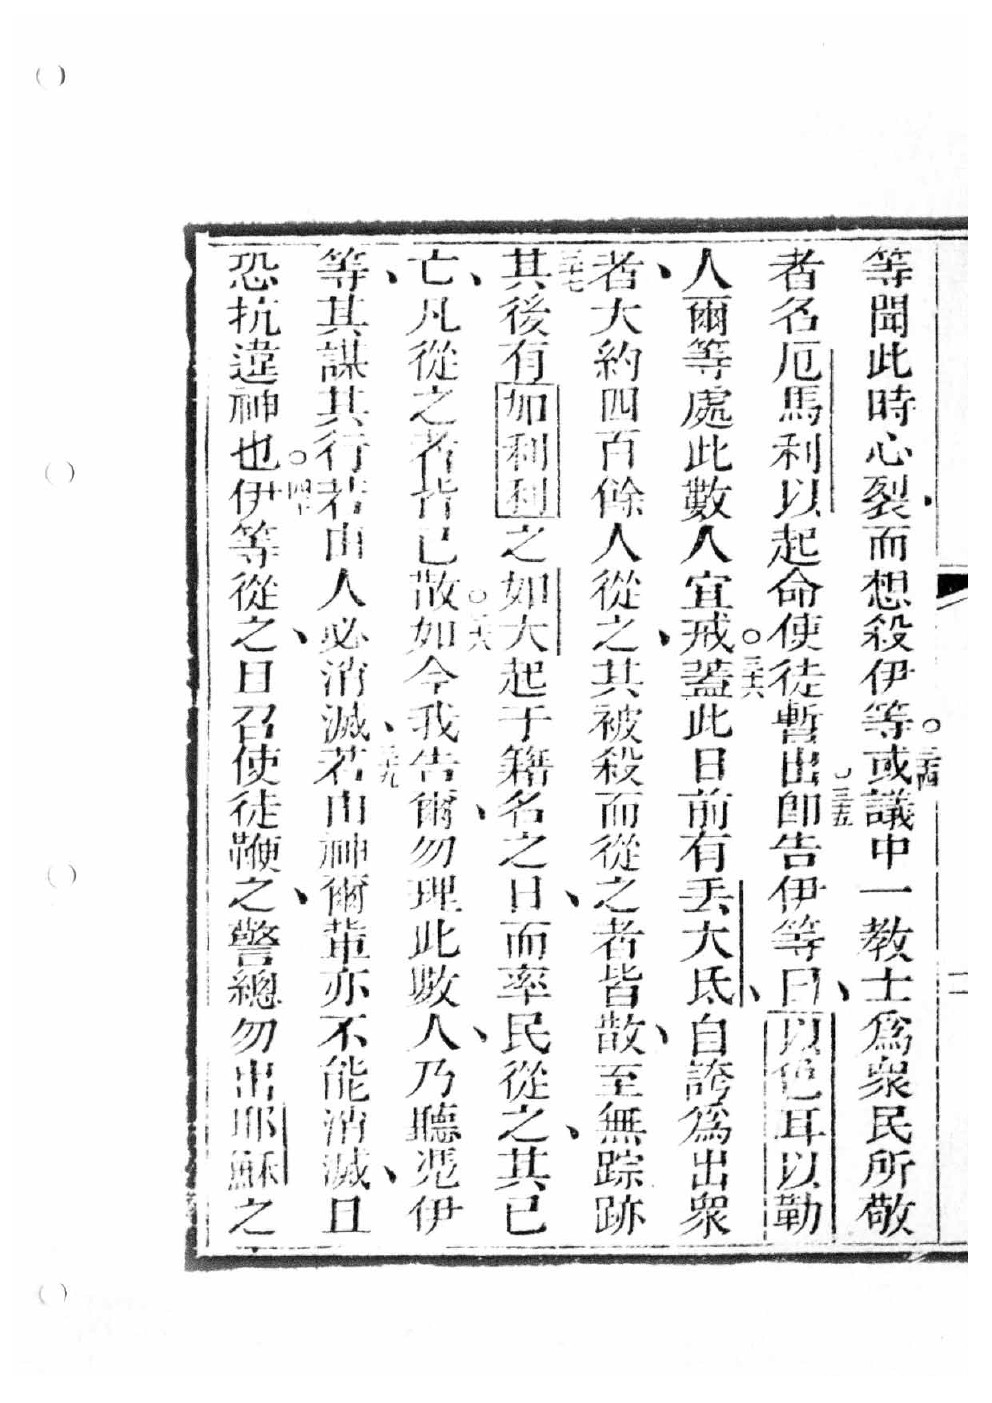 等聞此時心裂而想殺伊等○三十四或議中一教士爲衆民所敬
者名厄馬利以起命使徒暫出○三十五即告伊等曰以色耳以勒
人爾等處此數人宜戒○三十六蓋此日前有丟大氐自誇爲出衆
者大約四百餘人從之其被殺而從之者皆散至無踪跡
三十七其後有加利利之如大起于籍名之日而率民從之其已
亡凡從之者皆已散○三十八如今我告爾勿理此數人乃聽凴伊
等其謀其行若由人必消滅三十九若由神爾輩亦不能消滅且
恐抗違神也○四十伊等從之日召使徒鞭之警總勿出耶穌之